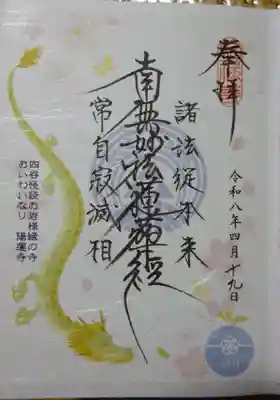 奉拝
令和八年四月十九日
諸法従本来
南無妙法蓮華経
常自寂滅相
四谷怪談お岩様縁の寺
おいわいなり 陽運寺